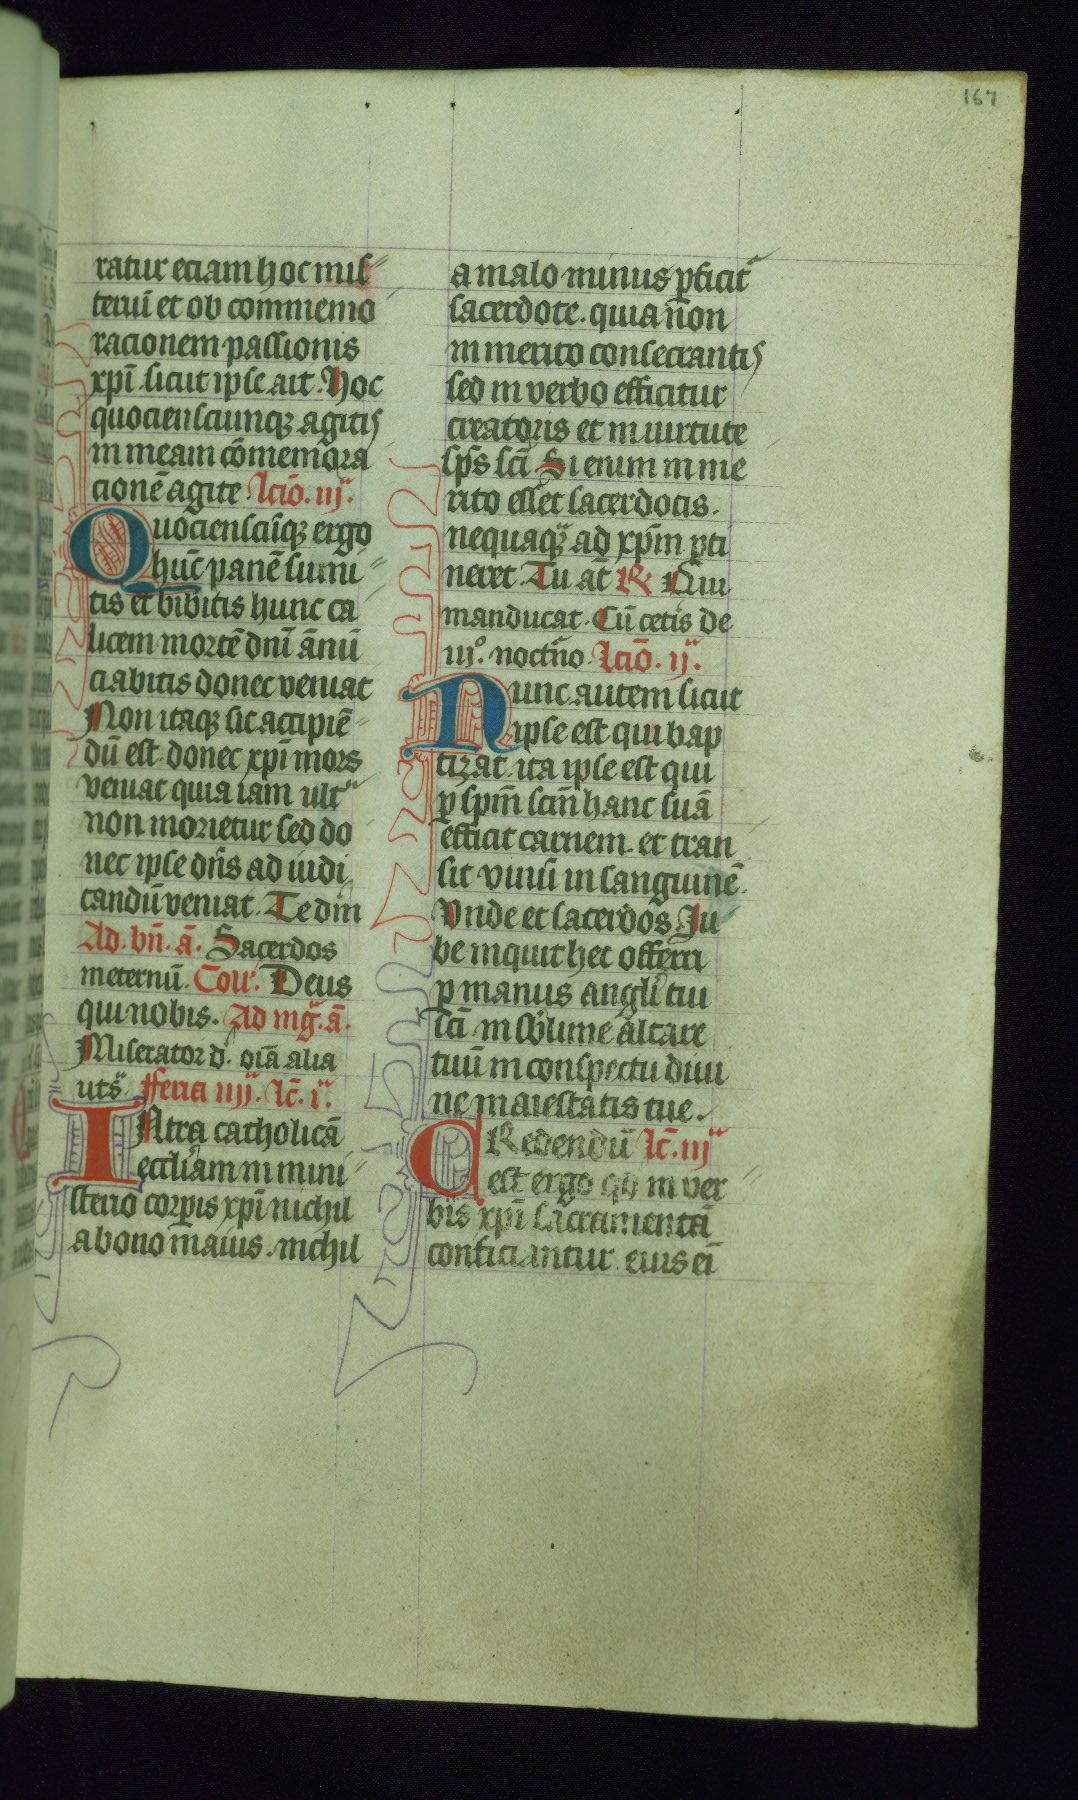 167
ratur eciam hoc mis
teriū et ob commemo
racionem passionis
xp̄i . sicut ipse ait . Hoc
quociensciunqꝫ agitis
in meam cōmemora
cionē agite . Lcīo . iijᵃ .
Quociensciūqꝫ ergo
hūc panē sumi
tis et bibitis hunc ca
licem mortē dnī ānū
ciabitis donec veniat
Non itaqꝫ sic accipiē
dū est . donec xp̄i mors
veniat quia iam ultᵃ
non morietur sed do
nec ipse dn̄s ad iudi
candū veniat . Te dm̄
Ad . bn̄ . ā . Sacerdos
in eternū . Coll̄ . Deus
qui nobis . Ad mgᷓ . ā .
Miserator d . oīa alia
ut sᷓ . fferia iiijᵃ . Lc̄ . iᵃ .
INtra catholicā
eccl'iam in mini
sterio corꝑis xp̄i nichil
a bono maius . nichil
a malo minus ꝑficit᷑
sacerdote . quia non
in merito consecrantis
sed in verbo efficitur
creatoris et in uirtute
sp̄s sc̄i Si enim in me
rito esset sacerdotis .
nequaqᷓ ad xp̄m ꝑti
neret . Tu aūt ℟ Qui
manducat . Cū cetis de
iijº . noct᷑no . Lcīo . ijᵃ .
Nunc autem sicut
ipse est qui bap
tizat . ita ipse est qui
ꝑ sp̄m sc̄m hanc suā
efficit carnem . et tran
sit vinū in sanguinē .
Vnde et sacerdos . Iu
be inquit hec offerri
ꝑ manus angl'i tui
sc̄i in sb̄lime altare
tuū in conspectu diui
ne maiestatis tue .
CRedendū Lc̄ . iijᵃ
est ergo qḋ in ver
bis xp̄i sacramenta
conficiantur . eius ei̅